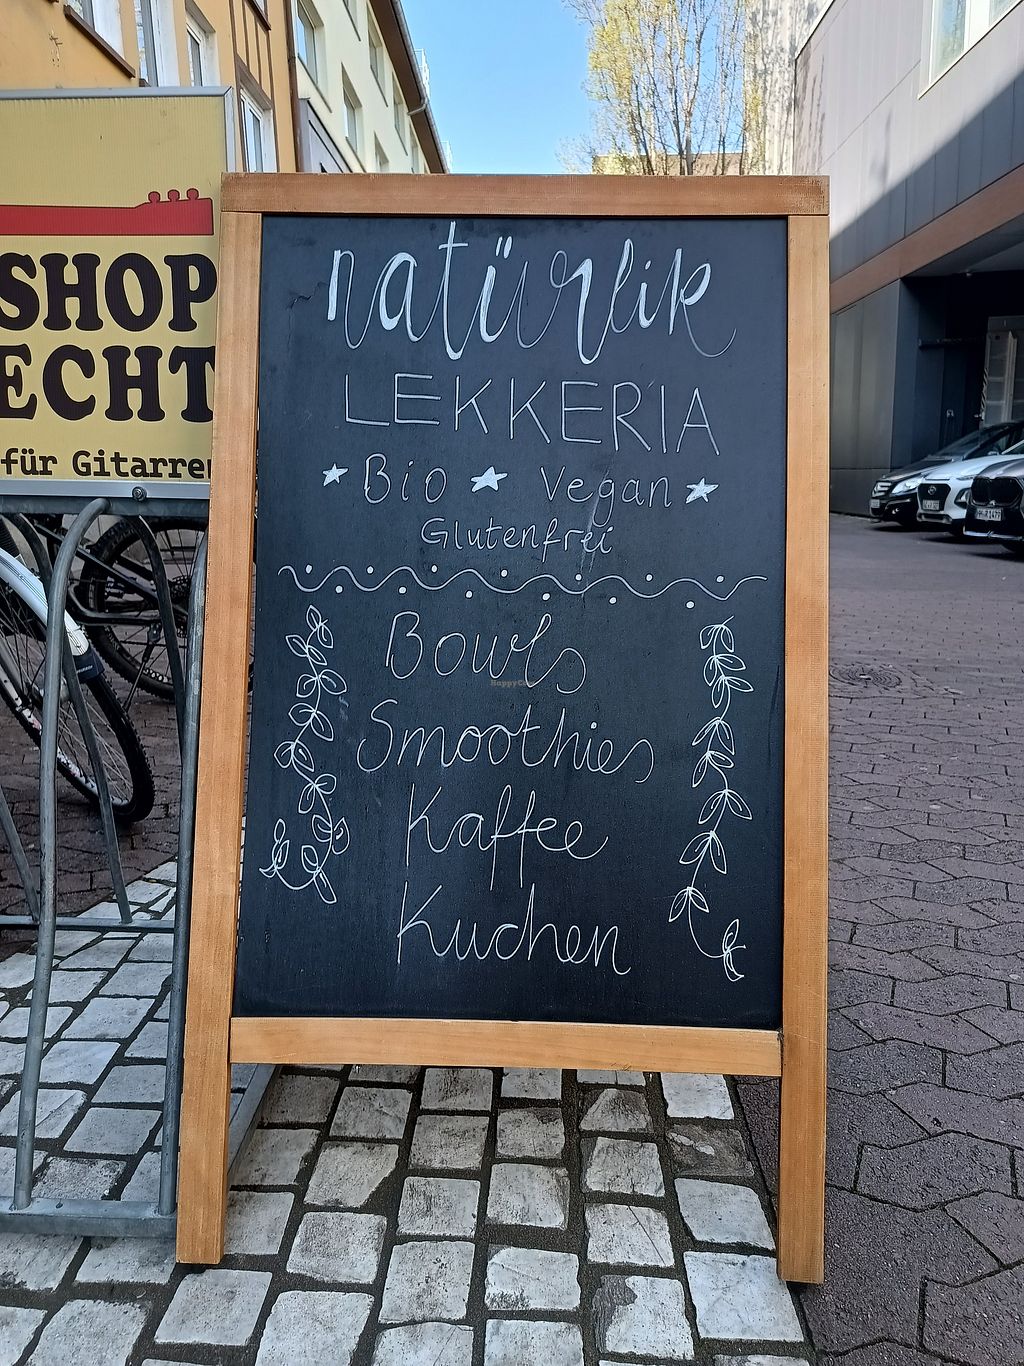 natürlik
LEKKERIA
Bio Vegan
Glutenfrei
Bowls
Smoothies
Kaffee
Kuchen
SHOP
ECHT
für Gitarren
HappyCow